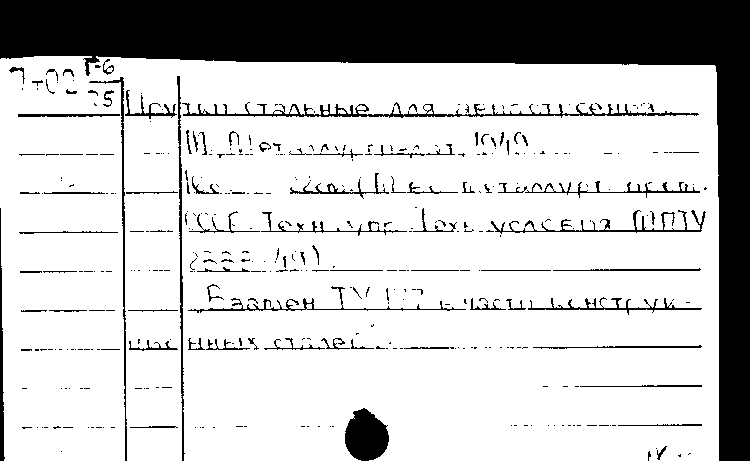 7-02 Г-6
75
Прутки стальные для авиастроения.
М. Металлургиздат, 1949.
22см. (М-во металлург. пром.
СССР. Техн. упр. Техн. условия ЧМТУ
2333-49).
Взамен ТУ 177 в части конструк-
ционных сталей.